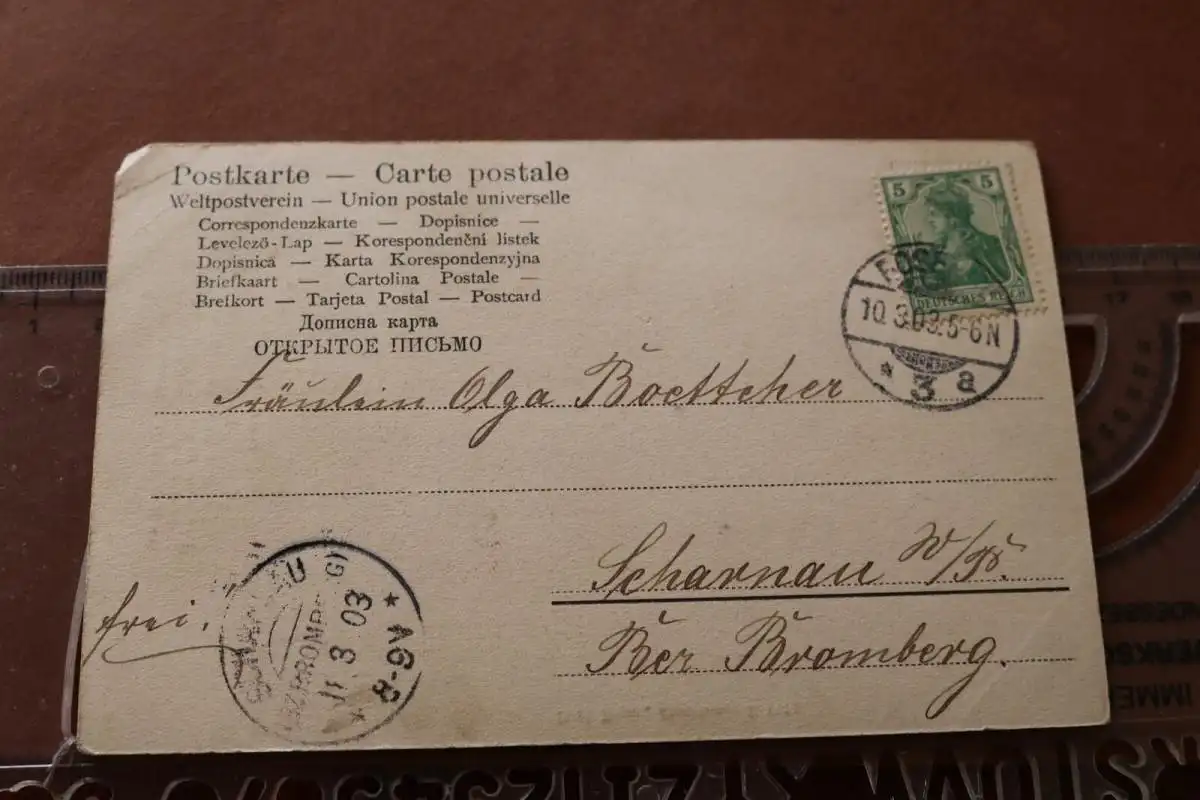 Postkarte — Carte postale
Weltpostverein — Union postale universelle
Correspondenzkarte — Dopisnice —
Levelező-Lap — Korespondenční listek
Dopisnica — Karta Korespondenzyjna
Briefkaart — Cartolina Postale —
Brefkort — Tarjeta Postal — Postcard
Дописна карта
ОТКРЫТОЕ ПИСЬМО
5 5
DEUTSCHES REICH
10.3.03.5-6N
* 3 a
Fräulein Olga Boettcher
Scharnau W/Pr.
Bez Bromberg.
frei.
11 3 03
* 6-8
1
17
IMME